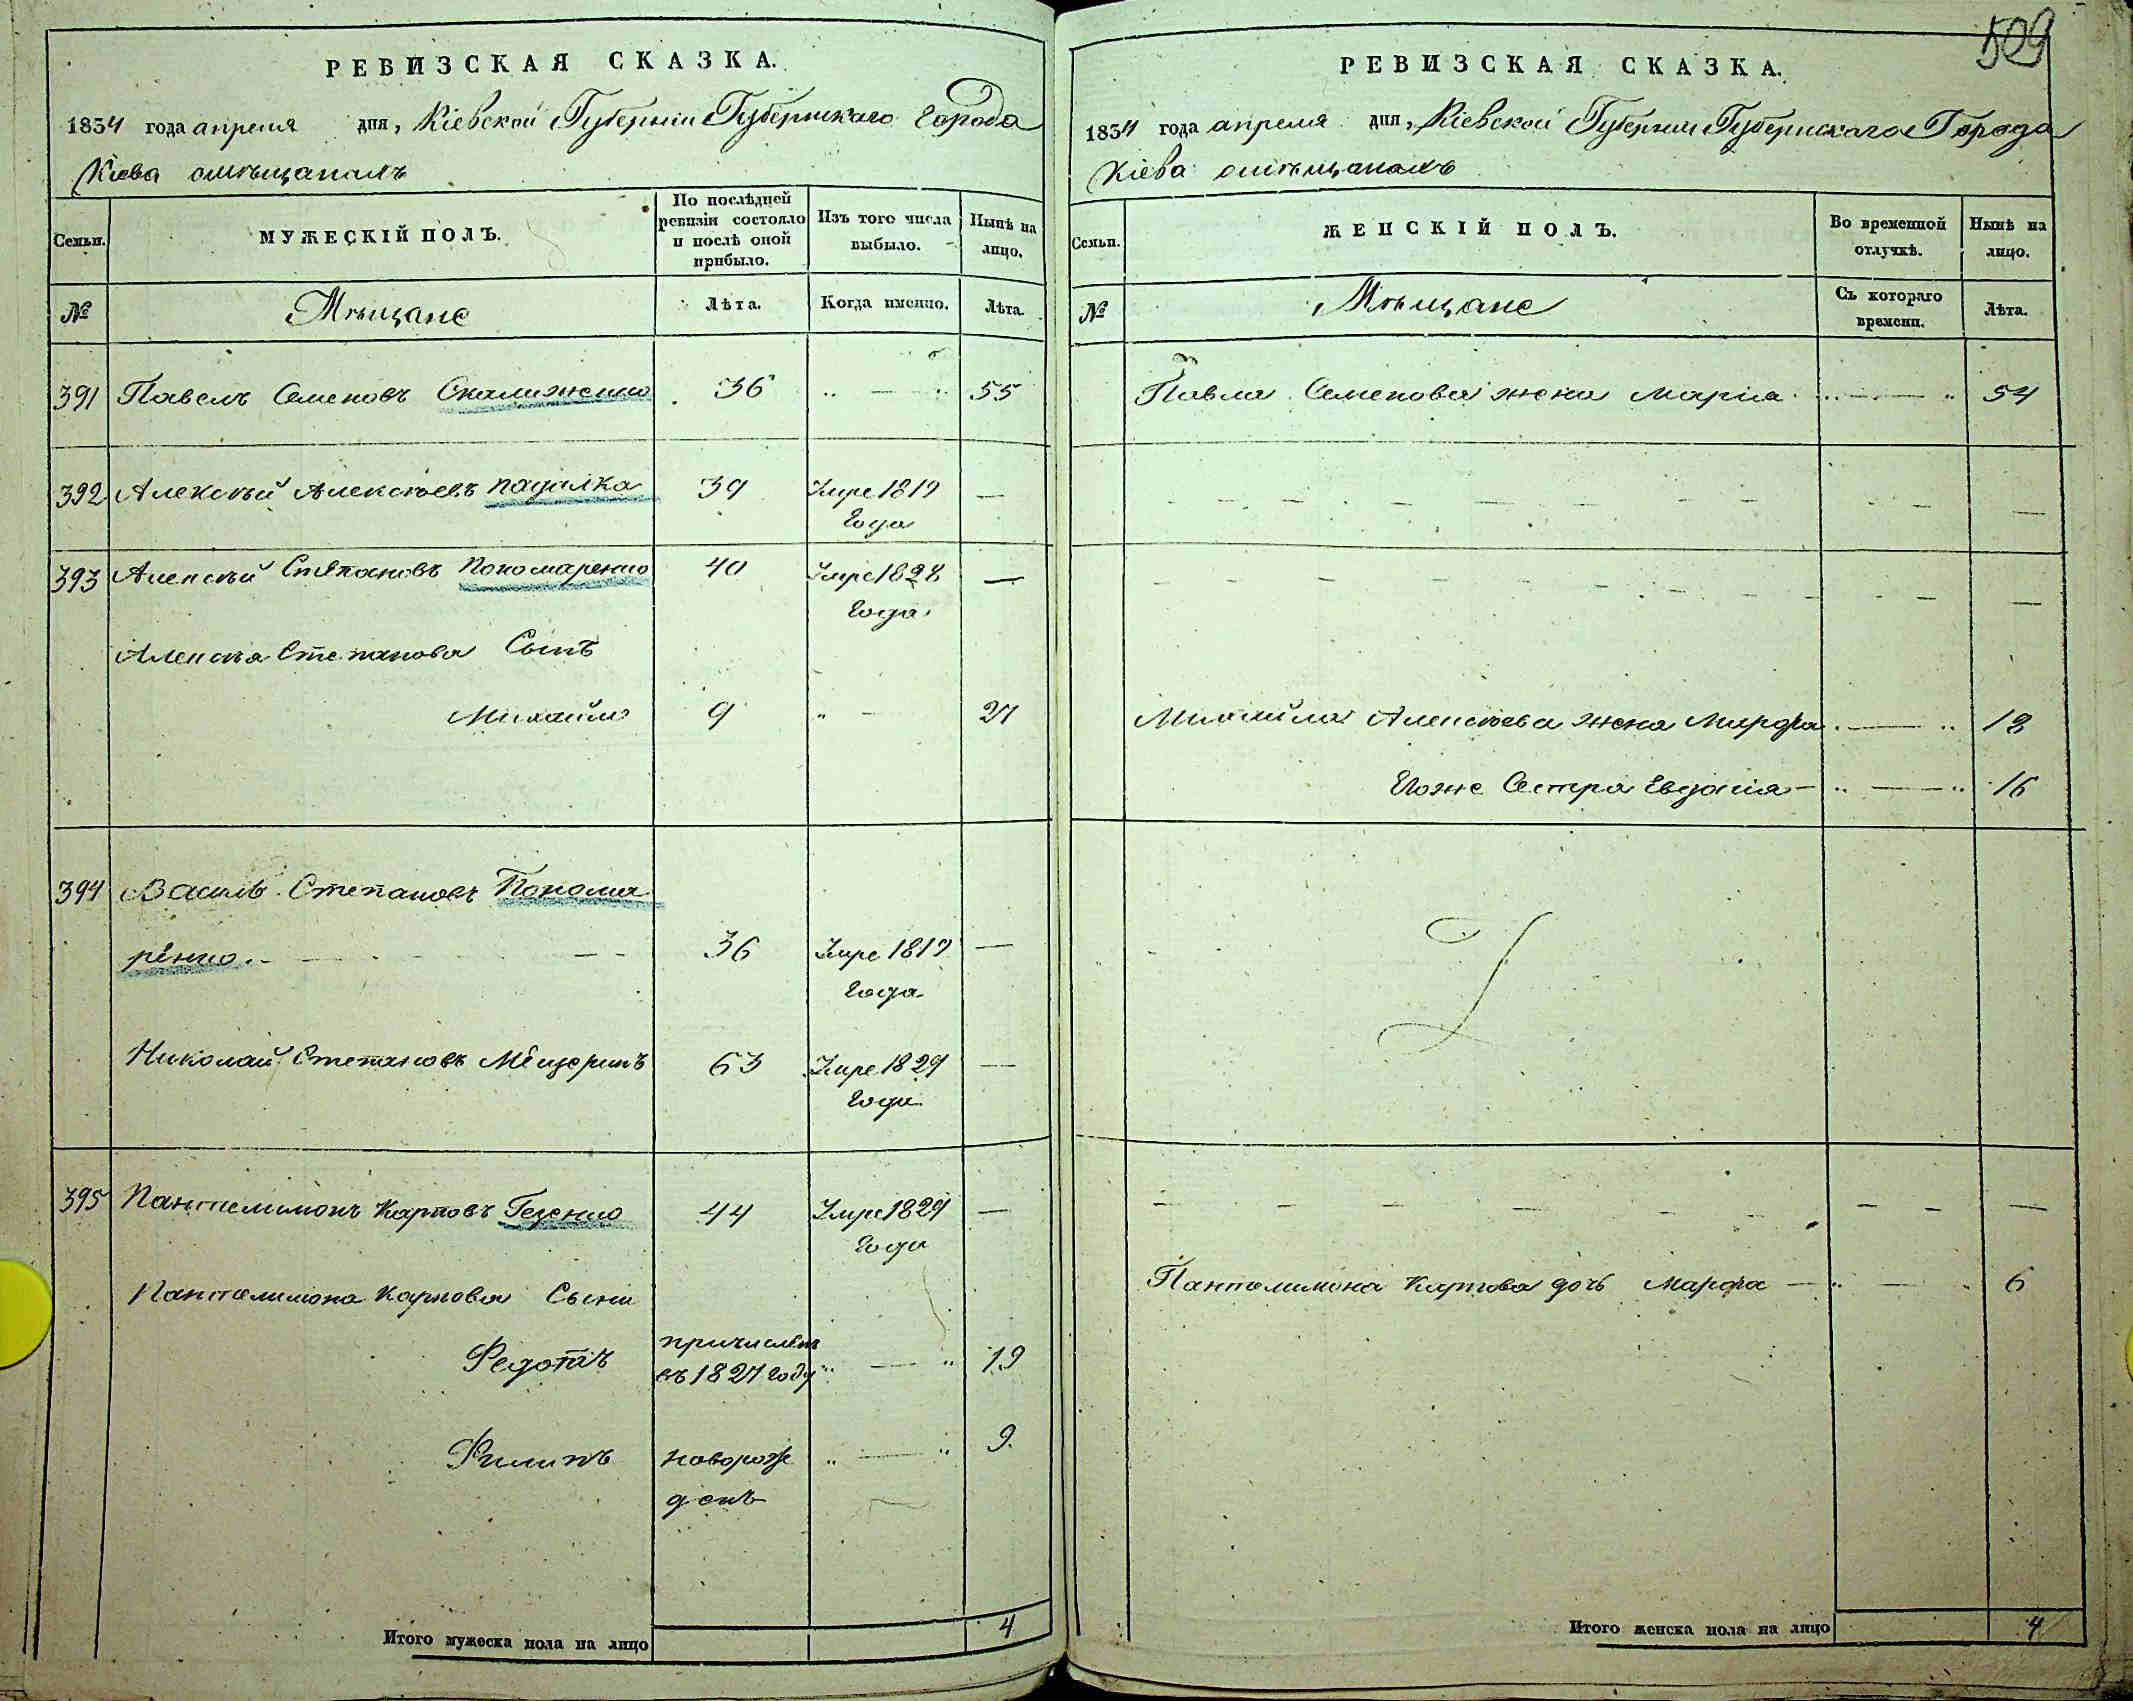 РЕВИЗСКАЯ СКАЗКА.
1834 года апреля дня, Кіевской Губерніи Губернскаго Города
Кіева омѣщанахъ
Семьи.
МУЖЕСКІЙ ПОЛЪ.
По послѣдней ревизіи состояло и послѣ оной прибыло.
Изъ того числа выбыло.
Нынѣ на лицо.
№
Мѣщане
Лѣта.
Когда именно.
Лѣта.
391 Павелъ Семеновъ 36 55
392 Алексѣй Алексѣевъ 39 Умре 1819 —
Года
393 Алексѣй Степановъ Пономаренко 40 Умре 1828 —
Года
Алексѣя Степанова Сынъ
Михайло 9 27
394 Василь Степановъ Понома
ренко. 36 Умре 1819 —
Года
Николай Степановъ Мещеринъ 63 Умре 1829 —
Года
395 Пантелимонъ Карповъ 44 Умре 1829 —
Года
Пантелимона Карпова Сыни
Федотъ причисленъ въ 1827 году 19
Филипъ новорож 9.
денъ
Итого мужеска пола на лицо 4
509
РЕВИЗСКАЯ СКАЗКА.
1834 года апреля дня, Кіевской Губерніи Губернскаго Города
Кіева омѣщанахъ
Семьи.
ЖЕНСКІЙ ПОЛЪ.
Во временной отлучкѣ.
Нынѣ на лицо.
№
Мѣщане
Съ котораго времени.
Лѣта.
Павла Семенова жена Марія 54
Михайла Алексѣева жена Марфа 18
Егоже Сестра Евдокія 16
Пантелимона Карпова дочь Марфа 6
Итого женска пола на лицо 4